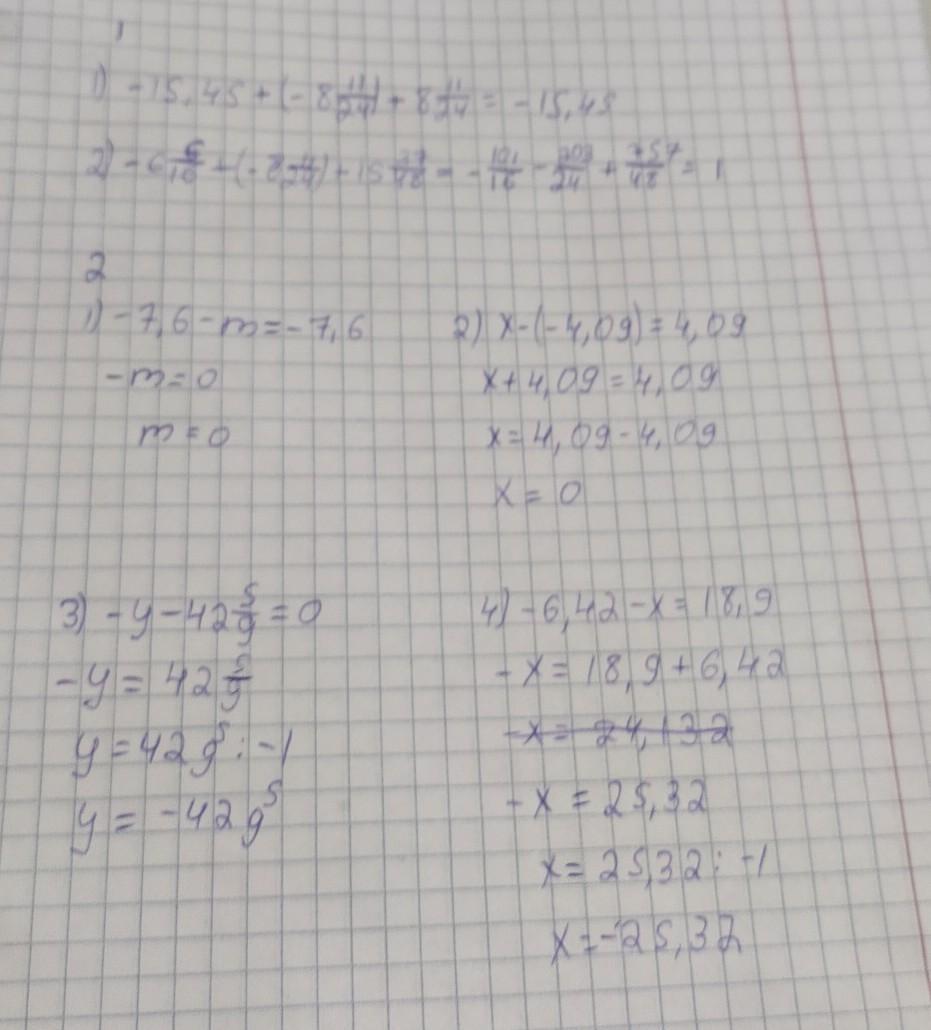 1
1) -15,45 + (-8 11/24) + 8 11/24 = -15,45
2) -6 5/16 + (-8 11/24) + 15 37/48 = -101/16 - 203/24 + 757/48 = 1
2
1) -7,6 - m = -7,6
-m = 0
m = 0
2) x - (-4,09) = 4,09
x + 4,09 = 4,09
x = 4,09 - 4,09
x = 0
3) -y - 42 5/9 = 0
-y = 42 5/9
y = 42 5/9 : -1
y = -42 5/9
4) -6,42 - x = 18,9
-x = 18,9 + 6,42
-x = 24,132
-x = 25,32
x = 25,32 : -1
x = -25,32